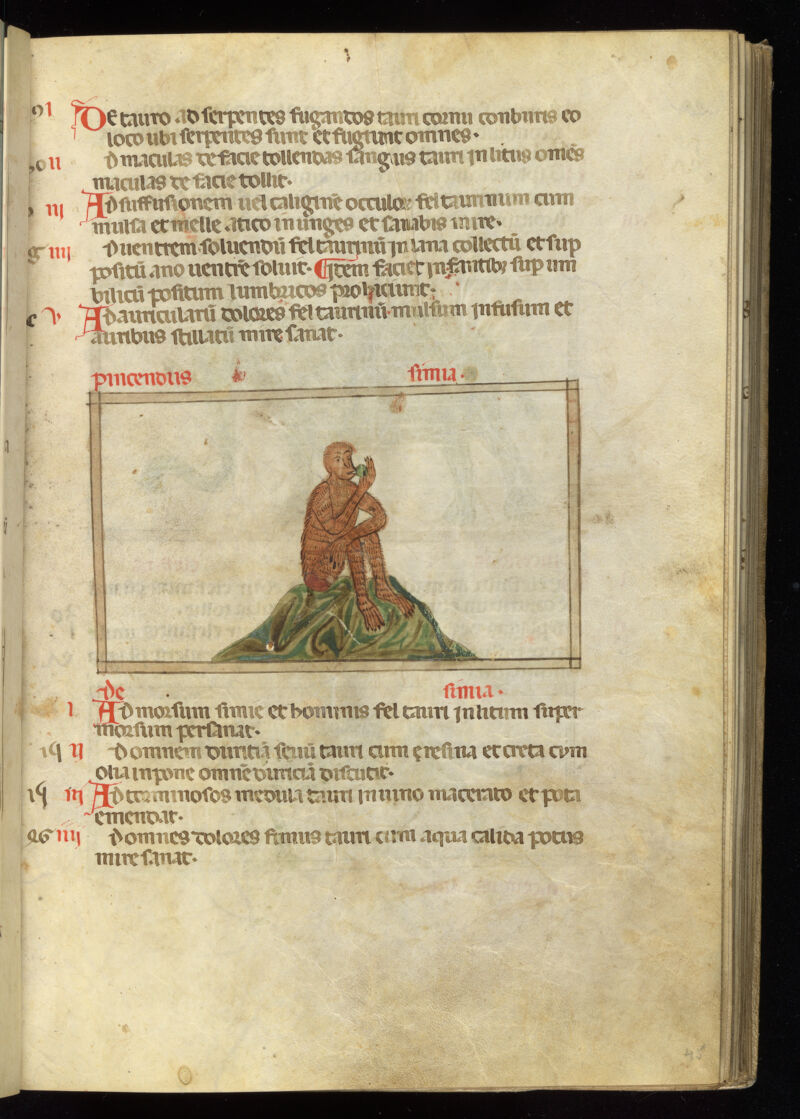 De tauro ad serpentes fugantos tauri cornu conburis eo
loco ubi serpentes sunt et fugiunt omnes.
ii Ad maculas de facie tollendas sanguis tauri inlitus omēs
maculas de facie tollit.
iii Ad suffusionem uel caliginē occuloꝝ fel taurinum cum
mulsa et melle atico in unges et sanabis mire.
iiii Ad uentrem soluendū fel taurinū in lana collectū et sup
positū ano uentrē soluit. Item faciet infantibꝫ sup um
bilicū positum lumbricos prohiciunt.
v Ad auricularū dolores fel taurinū mulsum infusum et
auribus stillatū mire sanat.
pincendus simia.
De simia.
i Ad morsum simie et hominis fel tauri inlitum super
morsum persanat.
ii Ad omnem duritiā seuū tauri cum resina et creta cum
olia inpone omnē duriciā discutit.
iii medula tauri in uino macerato et pota
emendat.
iiii Ad omnes dolores fimus tauri cum aqua calida potus
mire sanat.